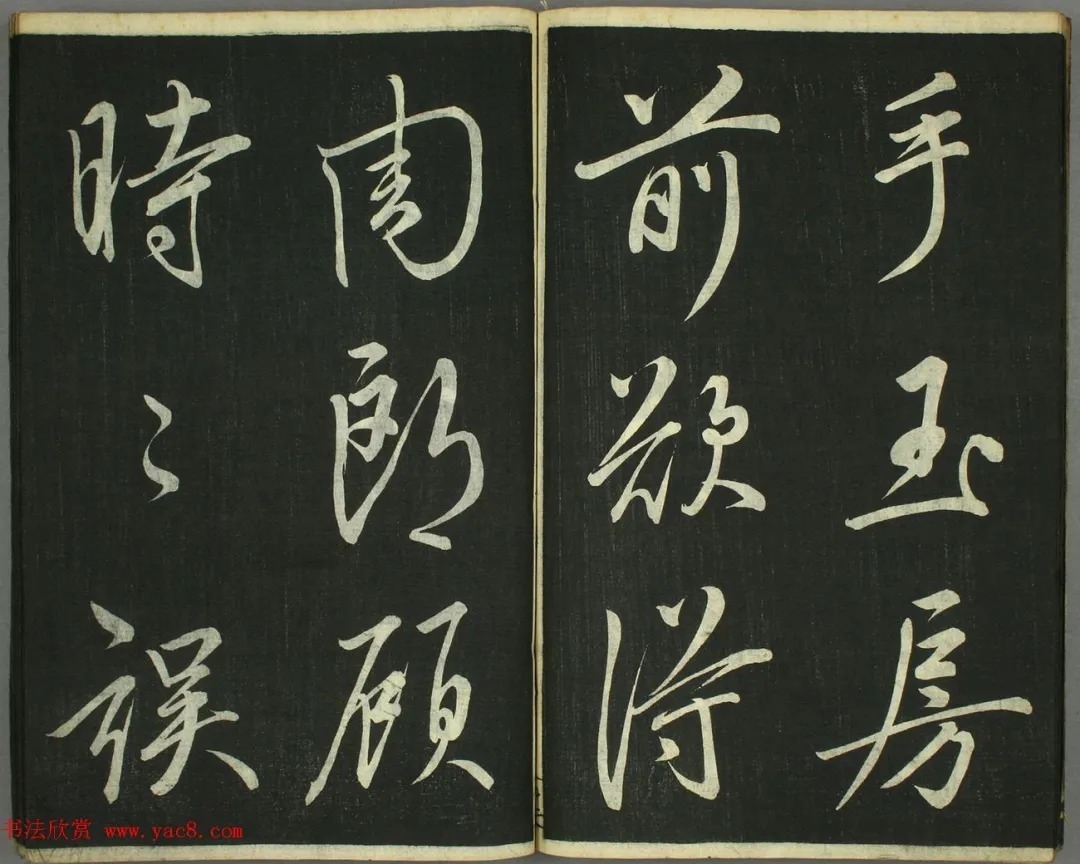 手玉房
前欲得
周郎顧
時〻誤
书法欣赏 www.yac8.com